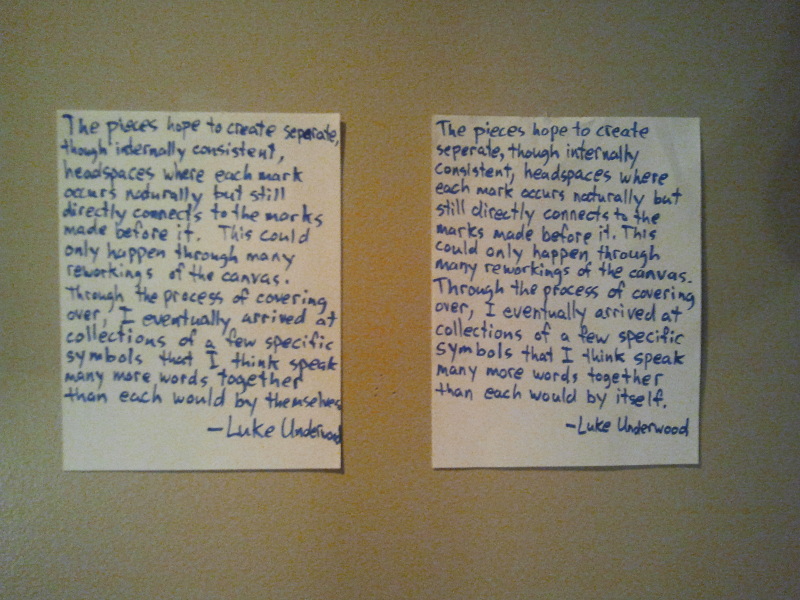 The pieces hope to create seperate,
though internally consistent,
headspaces where each mark
occurs naturally but still
directly connects to the marks
made before it. This could
only happen through many
reworkings of the canvas.
Through the process of covering
over, I eventually arrived at
collections of a few specific
symbols that I think speak
many more words together
than each would by themselves
—Luke Underwood
The pieces hope to create
seperate, though internally
consistent, headspaces where
each mark occurs naturally but
still directly connects to the
marks made before it. This
could only happen through
many reworkings of the canvas.
Through the process of covering
over, I eventually arrived at
collections of a few specific
symbols that I think speak
many more words together
than each would by itself.
—Luke Underwood